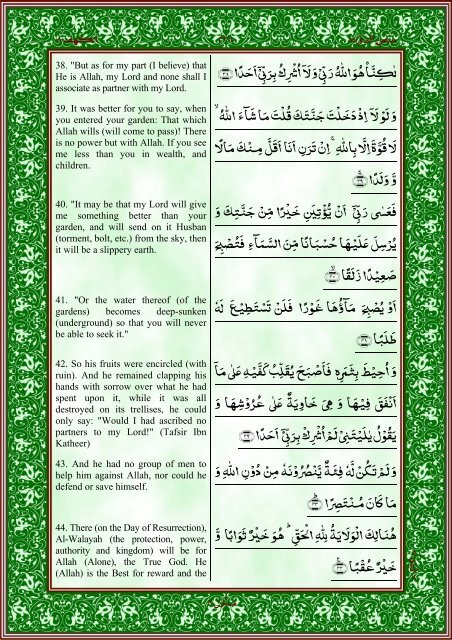 38. "But as for my part (I believe) that
He is Allah, my Lord and none shall I
associate as partner with my Lord.
39. It was better for you to say, when
you entered your garden: That which
Allah wills (will come to pass)! There
is no power but with Allah. If you see
me less than you in wealth, and
children.
40. "It may be that my Lord will give
me something better than your
garden, and will send on it Husban
(torment, bolt, etc.) from the sky, then
it will be a slippery earth.
41. "Or the water thereof (of the
gardens) becomes deep-sunken
(underground) so that you will never
be able to seek it."
42. So his fruits were encircled (with
ruin). And he remained clapping his
hands with sorrow over what he had
spent upon it, while it was all
destroyed on its trellises, he could
only say: "Would I had ascribed no
partners to my Lord!" (Tafsir Ibn
Katheer)
43. And he had no group of men to
help him against Allah, nor could he
defend or save himself.
44. There (on the Day of Resurrection),
Al-Walayah (the protection, power,
authority and kingdom) will be for
Allah (Alone), the True God. He
(Allah) is the Best for reward and the
لٰكِنَّا۠ هُوَ اللّٰهُ رَبِّيْ وَلَاۤ اُشْرِكُ بِرَبِّيْۤ اَحَدًا ﴿۳۸﴾
وَلَوْلَاۤ اِذْ دَخَلْتَ جَنَّتَكَ قُلْتَ مَا شَآءَ اللّٰهُ ۙ
لَا قُوَّةَ اِلَّا بِاللّٰهِ ۚ اِنْ تَرَنِ اَنَا اَقَلَّ مِنْكَ مَالًا
وَّ وَلَدًا ﴿۳۹﴾
فَعَسٰى رَبِّيْۤ اَنْ يُّؤْتِيَنِ خَيْرًا مِّنْ جَنَّتِكَ وَ
يُرْسِلَ عَلَيْهَا حُسْبَانًا مِّنَ السَّمَآءِ فَتُصْبِحَ
صَعِيْدًا زَلَقًا ﴿۴۰﴾
اَوْ يُصْبِحَ مَآؤُهَا غَوْرًا فَلَنْ تَسْتَطِيْعَ لَهٗ
طَلَبًا ﴿۴۱﴾
وَ اُحِيْطَ بِثَمَرِهٖ فَاَصْبَحَ يُقَلِّبُ كَفَّيْهِ عَلٰى مَاۤ
اَنْفَقَ فِيْهَا وَ هِيَ خَاوِيَةٌ عَلٰى عُرُوْشِهَا وَ
يَقُوْلُ يٰلَيْتَنِيْ لَمْ اُشْرِكْ بِرَبِّيْۤ اَحَدًا ﴿۴۲﴾
وَلَمْ تَكُنْ لَّهٗ فِئَةٌ يَّنْصُرُوْنَهٗ مِنْ دُوْنِ اللّٰهِ وَ
مَا كَانَ مُنْتَصِرًا ﴿۴۳﴾
هُنَالِكَ الْوَلَايَةُ لِلّٰهِ الْحَقِّ ؕ هُوَ خَيْرٌ ثَوَابًا وَّ
خَيْرٌ عُقْبًا ﴿۴۴﴾